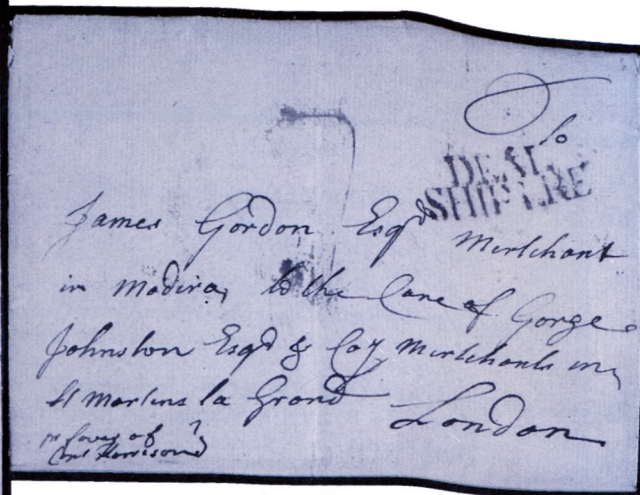 To
DEAL
SHIP LRE
James Gordon Esqr Merchant
in Madira, to the Care of Gorge
Johnston Esqr & Coy Merchants in
St Martins la Grand London
pr favor of
Harrison